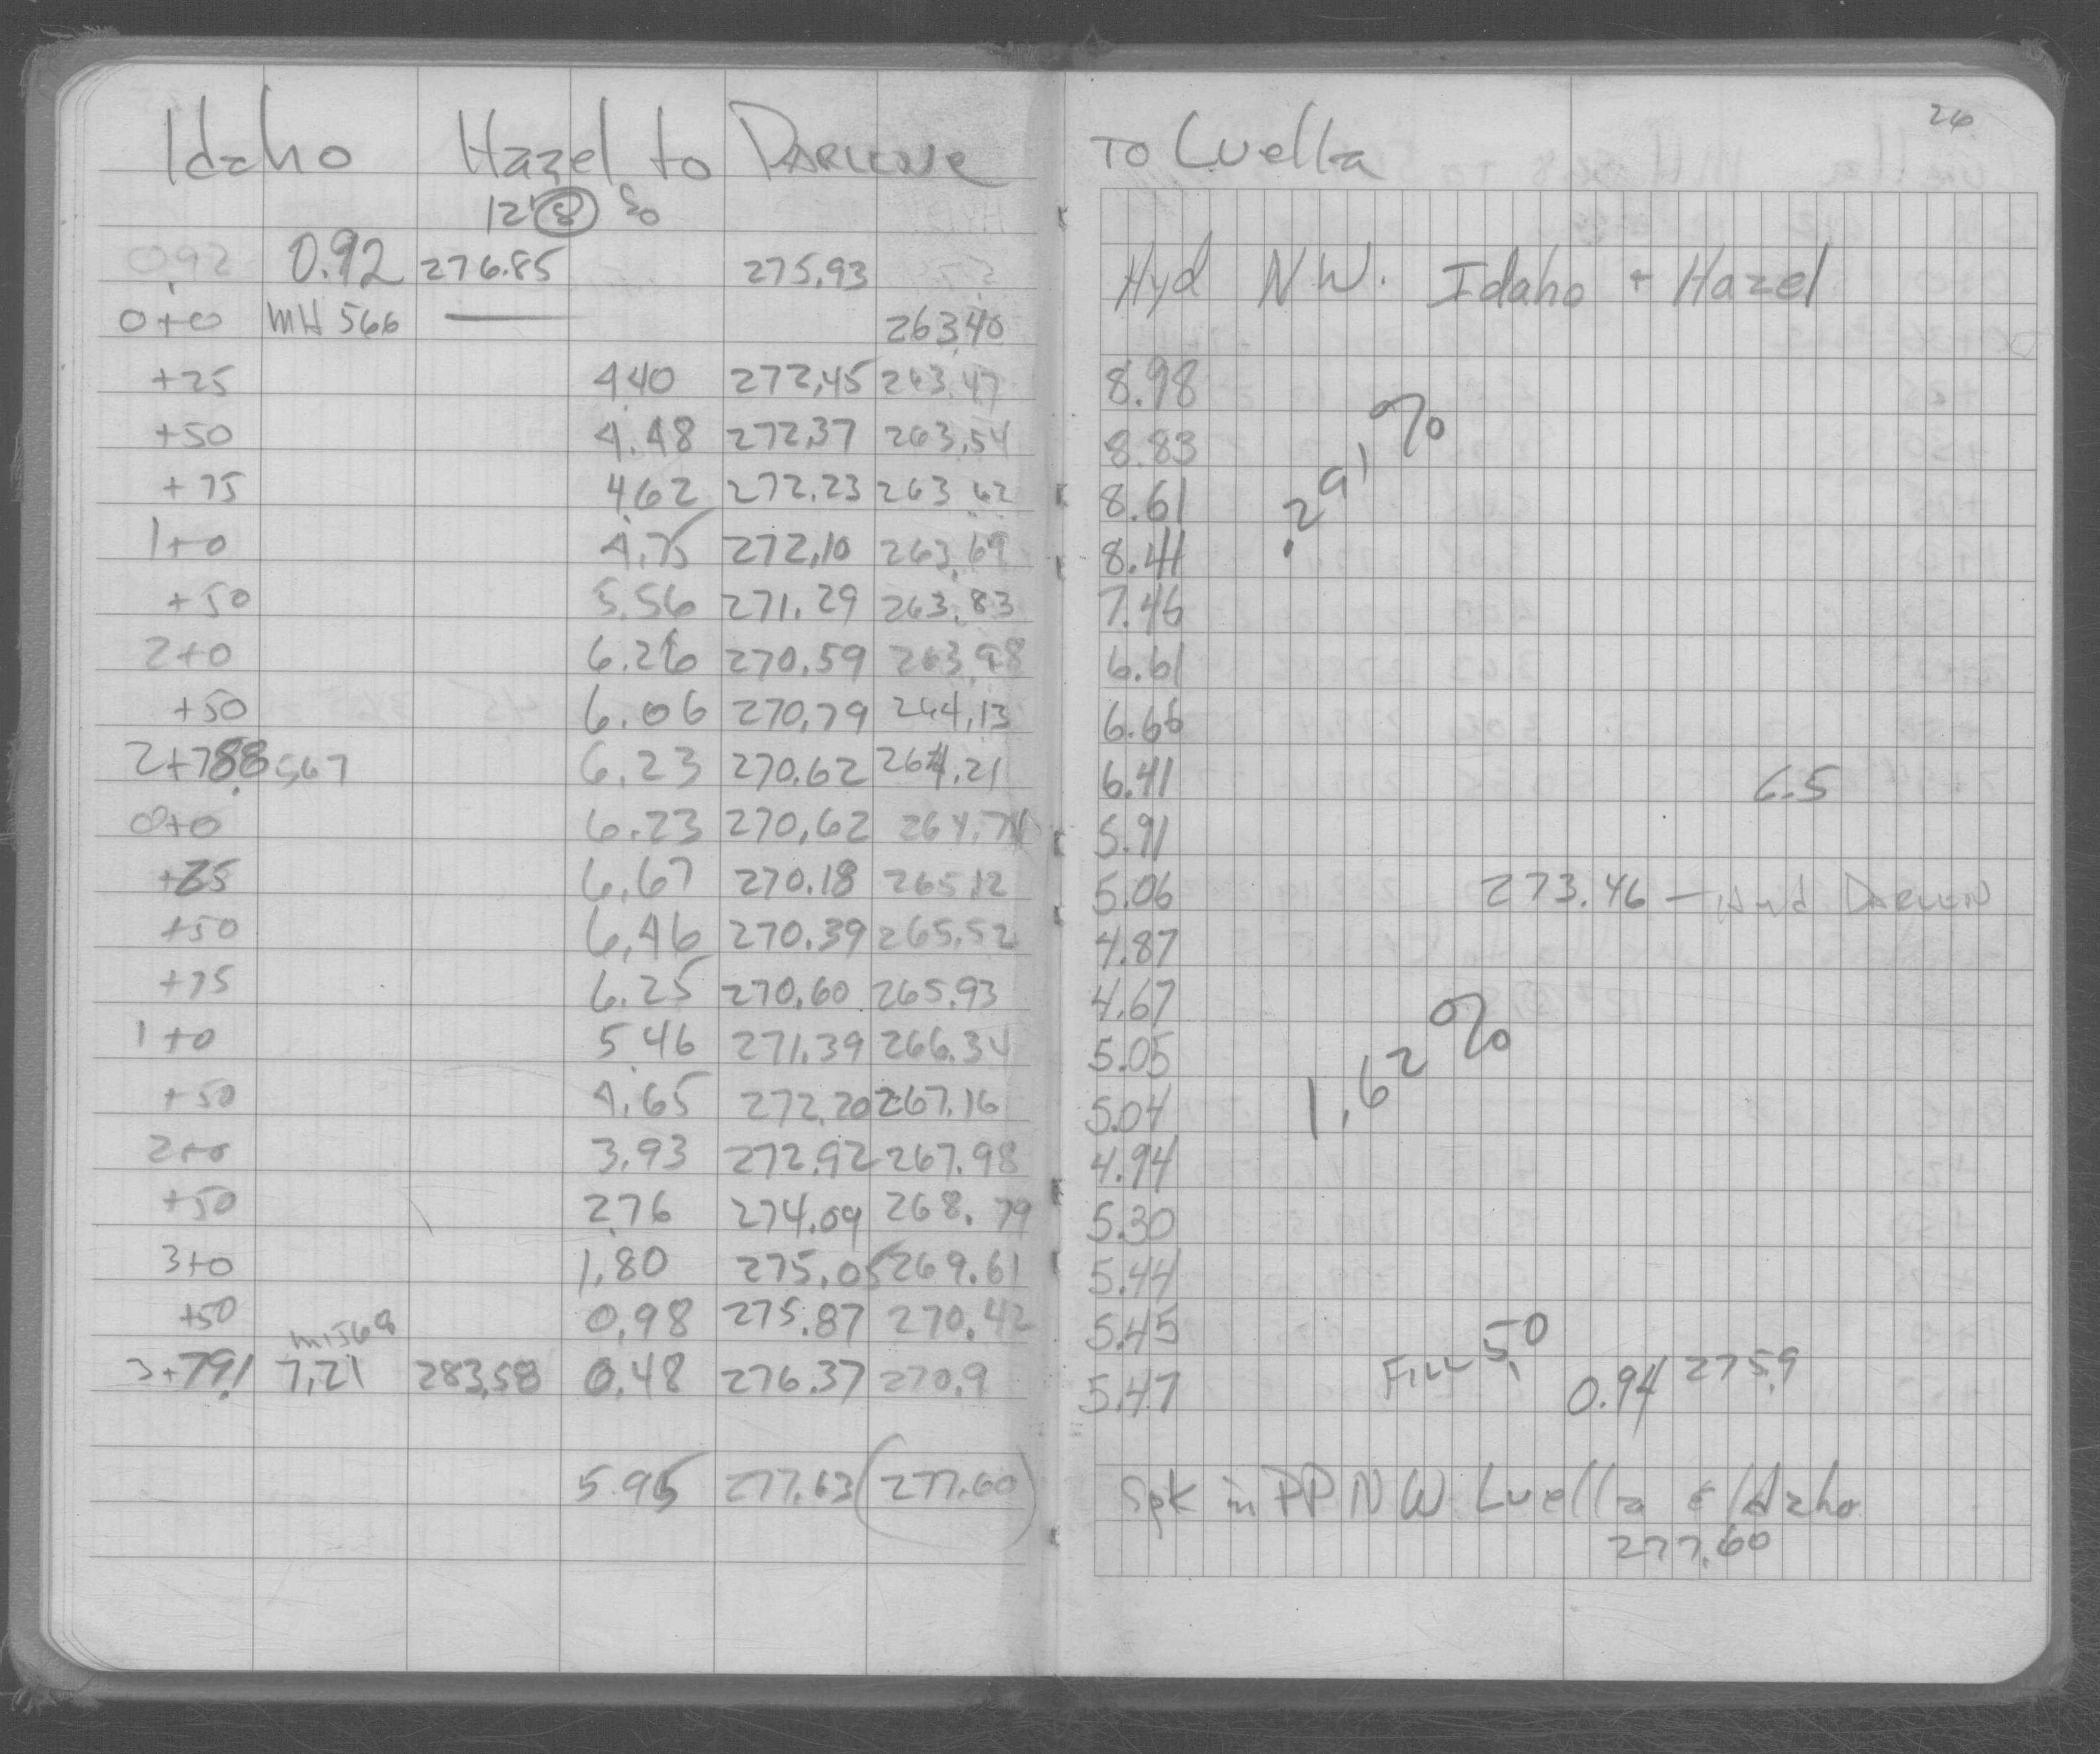 Idaho Hazel to Darlene To Luella 26
12" 8 So
0.92 0.92 276.85 275.93 Hyd NW. Idaho + Hazel
0+0 MH 566 — 263.40
+25 4.40 272.45 263.47 8.98
+50 4.48 272.37 263.54 8.83 .291%
+75 4.62 272.23 263.62 8.61
1+0 4.75 272.10 263.69 8.41
+50 5.56 271.29 263.83 7.46
2+0 6.26 270.59 263.98 6.61
+50 6.06 270.79 264.13 6.66
2+78.8 567 6.23 270.62 264.21 6.41 6.5
0+0 6.23 270.62 264.71 5.91
+25 6.67 270.18 265.12 5.06 273.46 — Hyd Darlen
+50 6.46 270.39 265.52 4.87
+75 6.25 270.60 265.93 4.67
1+0 5.46 271.39 266.34 5.05 1.62%
+50 4.65 272.20 267.16 5.04
2+0 3.93 272.92 267.98 4.94
+50 2.76 274.09 268.79 5.30
3+0 1.80 275.05 269.61 5.44
+50 0.98 275.87 270.42 5.45
MH568
3+79.1 7.21 283.58 0.48 276.37 270.9 5.47 Fill 5.0 0.94 275.9
5.95 277.63 (277.60) Spk in PP NW Luella & Idaho
277.60